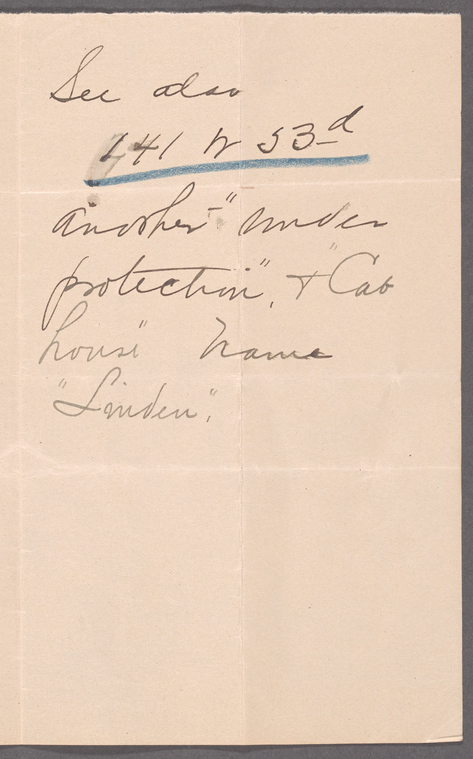 See also
141 W 53d
another "under
protection", + "Cab
house" Name
"Linden".